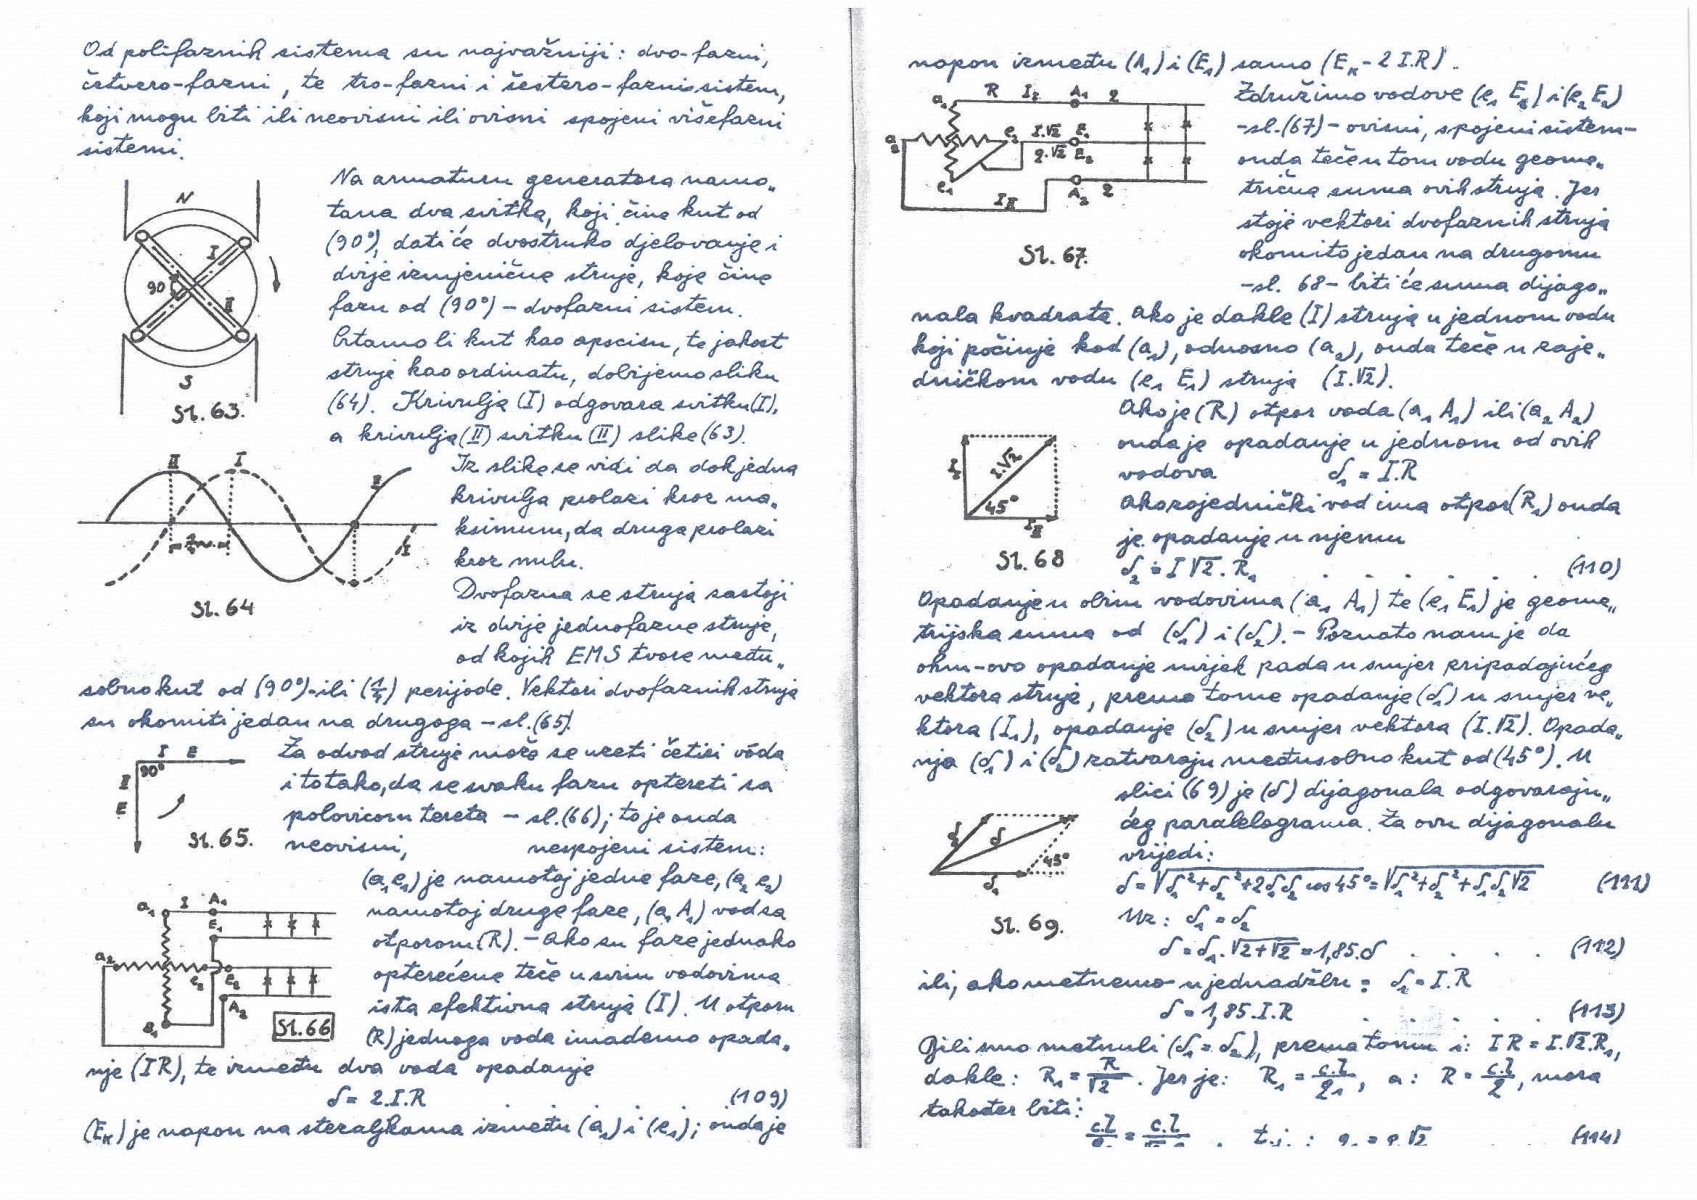 Od polifaznih sistema su najvažniji: dvo-fazni,
četvero-fazni, te tro-fazni i šestero-fazni sistem,
koji mogu biti ili neovisni ili ovisni spojeni višefazni
sistemi.
Na armaturu generatora namo„
tana dva svitka, koji čine kut od
(90°), dati će dvostruko djelovanje i
dvije izmjenične struje, koje čine
fazu od (90°) – dvofazni sistem.
Uzamo li kut kao apscisu, te jakost
struje kao ordinatu, dobijemo sliku
(64). Krivulja (I) odgovara svitku (I),
a krivulja (II) svitku (II) slike (63).
N
I
90
II
S
Sl. 63.
Iz slike se vidi da dok jedna
krivulja prolazi kroz ma„
ksimum, da druga prolazi
kroz nulu.
Dvofazna se struja sastoji
iz dvije jednofazne struje,
od kojih EMS tvore među„
II
I
I
Sl. 64
sobno kut od (90°) ili (¼) perijode. Vektori dvofaznih struja
su okomiti jedan na drugoga – sl. (65).
Za odvod struje može se uzeti četiri vóda
i to tako, da se svaku fazu optereti sa
polovicom tereta – sl. (66); to je onda
neovisni, nespojeni sistem:
I E
90°
I
E
Sl. 65.
(a₁e₁) je namotaj jedne faze, (a₂ e₂)
namotaj druge faze, (a₁A₁) vod sa
otporom (R). – Ako su faze jednako
opterećene teče u svim vodovima
ista efektivna struja (I). U otporu
(R) jednoga voda imademo opada„
a₁ I A₁
E₁
a₂
e₂ E₂
A₂
Sl. 66
nje (IR), te između dva voda opadanje
δ = 2.I.R . . . (109)
(Eₖ) je napon na stezaljkama između (a₁) i (e₁); onda je
napon između (A₁) i (E₁) samo (Eₖ - 2 I.R).
a₁ R I₂ A₁ 2
a₂ e₂ I.√2 E₁
2.√2 E₂
e₁ I II A₂ 2
Sl. 67.
Združimo vodove (e₁ E₁) i (e₂ E₂)
-sl. (67) – ovisni, spojeni sistem –
onda teče u tom vodu geome„
trična suma ovih struja. Jer
stoje vektori dvofaznih struja
okomito jedan na drugomu
-sl. 68 – biti će suma dijago„
nala kvadrata. Ako je dakle (I) struja u jednom vodu
koji počinje kod (a₁), odnosno (a₂), onda teče u zaje„
dničkom vodu (e₁ E₁) struja (I.√2).
Ako je (R) otpor voda (a₁ A₁) ili (a₂ A₂)
onda je opadanje u jednom od ovih
vodova δ₁ = I.R
Ako zajednički vod ima otpor (R₁) onda
je opadanje u njemu
δ₂ = I √2 . R₁ . . . . . (110)
I.√2
45°
I II
Sl. 68
Opadanje u obim vodovima (a₁ A₁) te (e₁ E₁) je geome„
trijska suma od (δ₁) i (δ₂). – Poznato nam je da
ohm-ovo opadanje uvijek pada u smjer pripadajućeg
vektora struje, prema tome opadanje (δ₁) u smjer ve„
ktora (I₁), opadanje (δ₂) u smjer vektora (I.√2). Opada„
nja (δ₁) i (δ₂) zatvaraju međusobno kut od (45°). U
slici (69) je (δ) dijagonala odgovaraju„
ćeg paralelograma. Za ovu dijagonalu
vrijedi:
δ₂ δ 45°
δ₁
Sl. 69.
δ = √δ₁² + δ₂² + 2δ₁δ₂ cos 45° = √δ₁² + δ₂² + δ₁δ₂√2 (111)
Uz: δ₁ = δ₂
δ = δ₁ . √2+√2 = 1,85 δ . . . . (112)
ili, ako metnemo u jednadžbu: δ₁ = I.R
δ = 1,85.I.R . . . . (113)
Bili smo metnuli (δ₁ = δ₂), prema tomu i: IR = I.√2.R₁,
dakle: R₁ = R/√2 . Jer je: R₁ = c.l/2₁, a: R = c.l/2, mora
također biti:
(114)